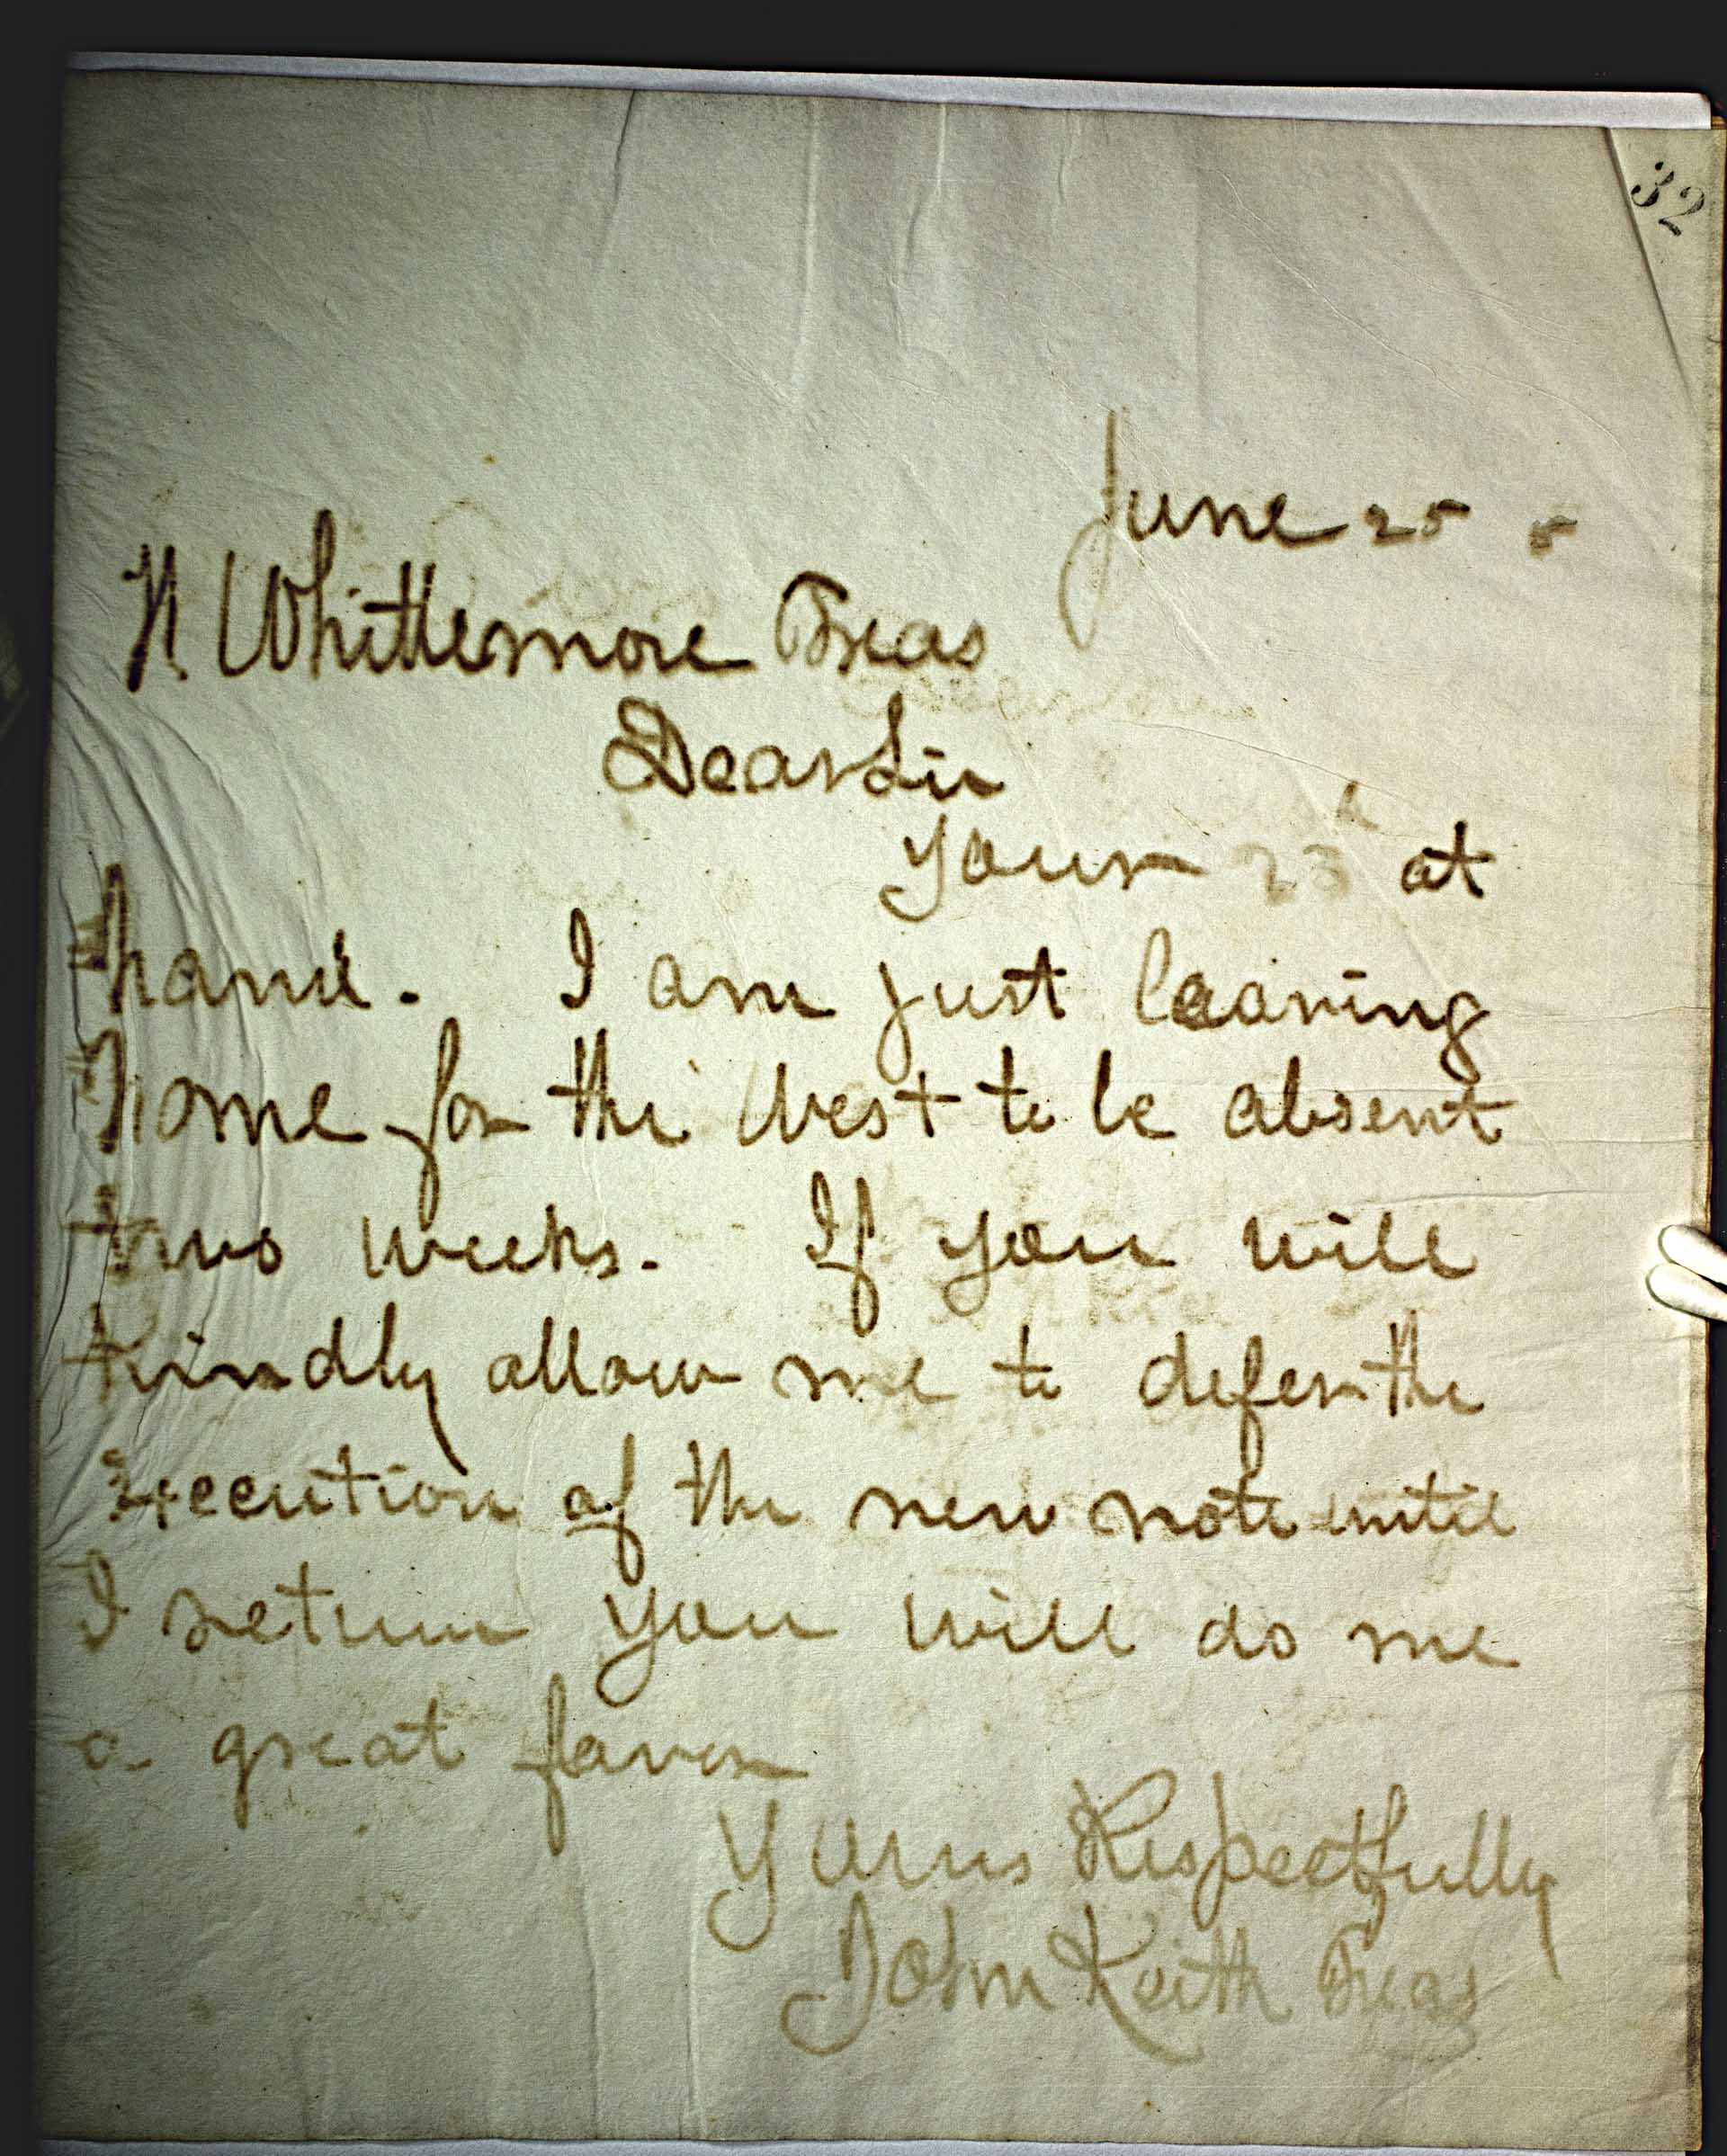 32
June 25 5
N. Whittemore Treas
Dear Sir
Your 23 at
hand. I am just leaving
home for the West to be absent
two weeks. If you will
kindly allow me to defer the
execution of the new note until
I return you will do me
a great favor
Yours Respectfully
John Keith Treas